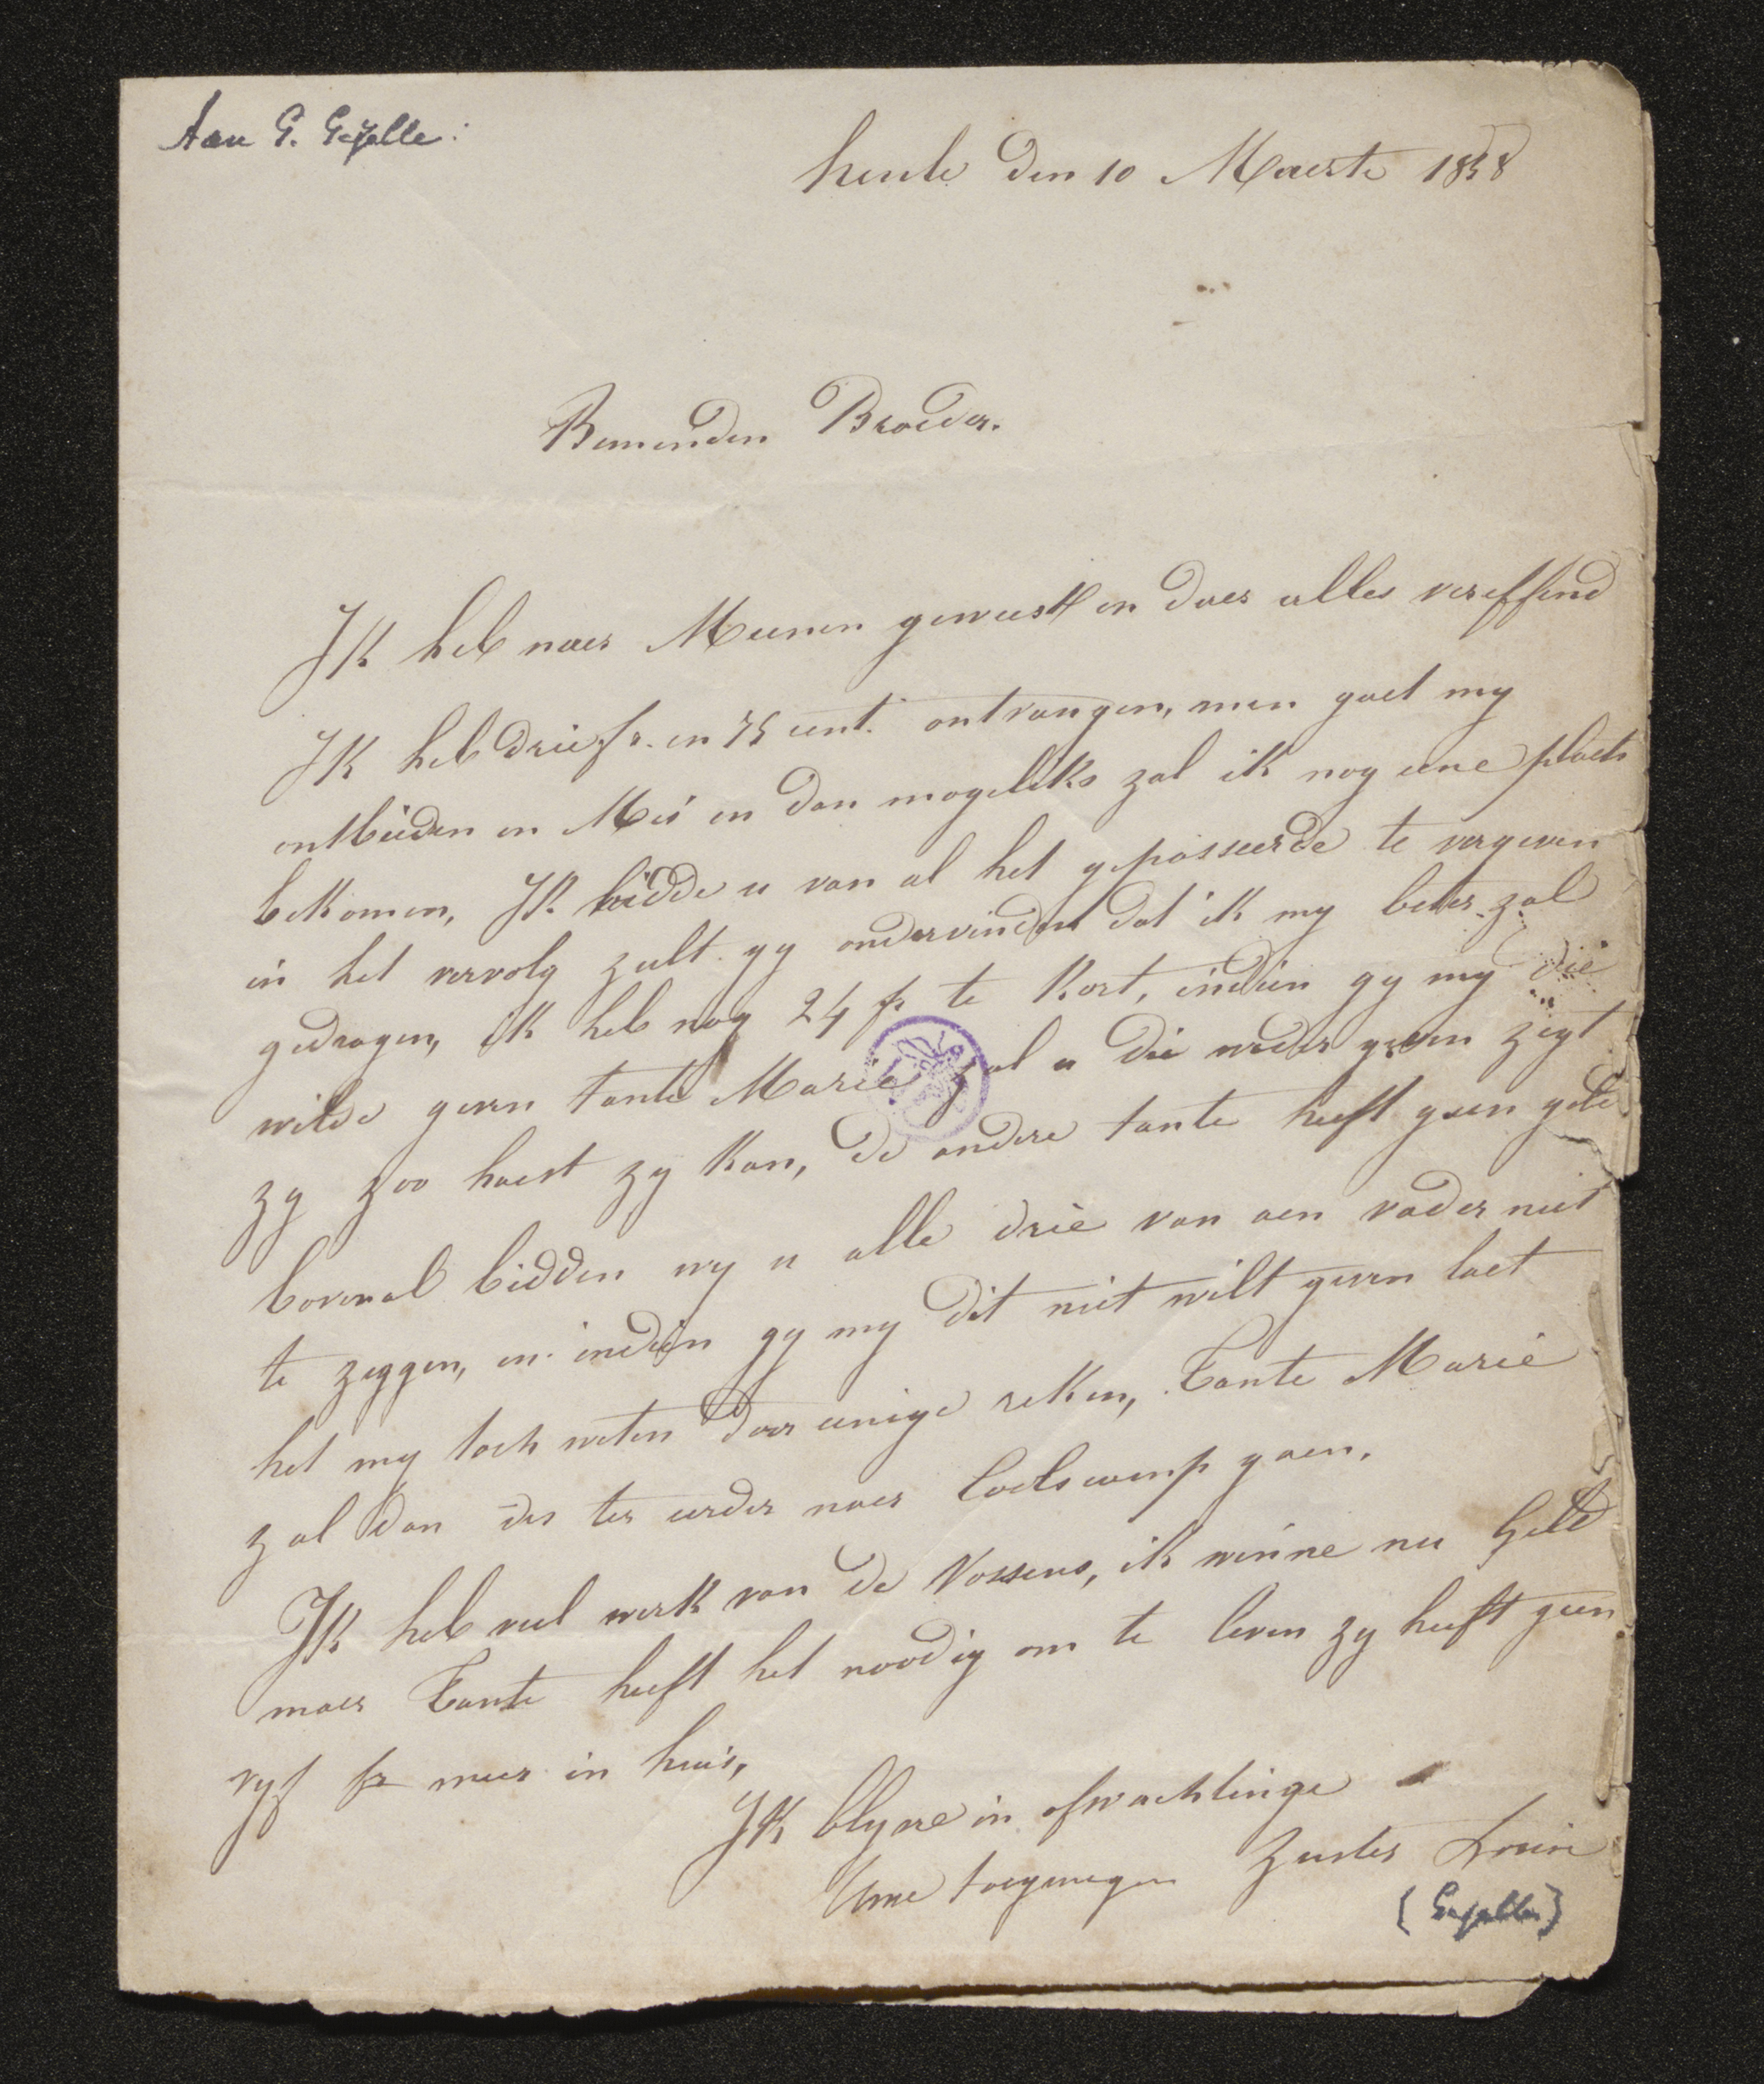 Aan G. Gezelle:
heule den 10 Maerte 1858
Beminden Broeder.
IK heb naer Meenen geweest en daer alles vereffend
IK heb drie fr. en 75 cent. ontvangen, men gaet my
ontbieden en Mei en dan mogeliks zal ik nog eene plaets
beKomen, IK bidde u van al het gepasseerde te vergeven
in het vervolg zult gy ondervinden dat ik my beter zal
gedragen, ik heb nog 24 fr te Kort, indien gy my die
wilde geven tante Marie zal u die weder geven zegt
zy zoo haest zy Kan, de andere tante heeft geen geld
bovenal bidden wy u alle drie van aen vader niet
te zeggen, en indien gy my dit niet wilt geven laet
het my toch weten door eenige reken, Tante Marie
zal dan des ter eerder naer Coolscamp gaen.
IK heb veel werk van de Vossens, ik winne nu geld
maer Tante heeft het noodig om te leven zy heeft geen
vyf fr meer in huis,
IK blyve in afwachtinge
Uwe toegenegen Zuster Louise
(Gezelle)